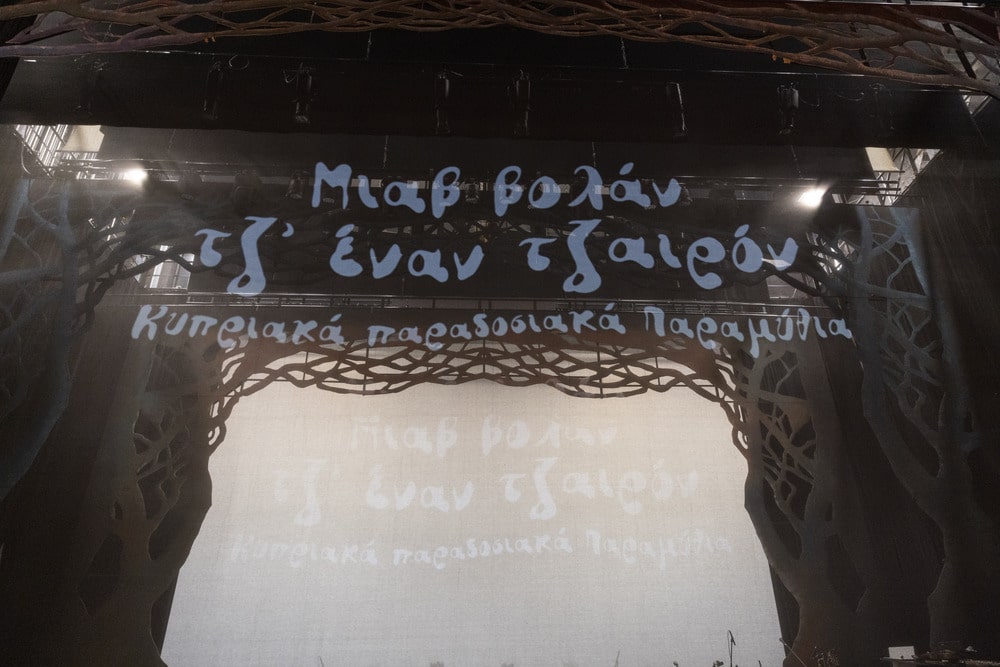 Μιαβ βολάν
τζ' έναν τζαιρόν
Κυπριακά παραδοσιακά Παραμύθια
Μιαβ βολάν
τζ' έναν τζαιρόν
Κυπριακά παραδοσιακά Παραμύθια